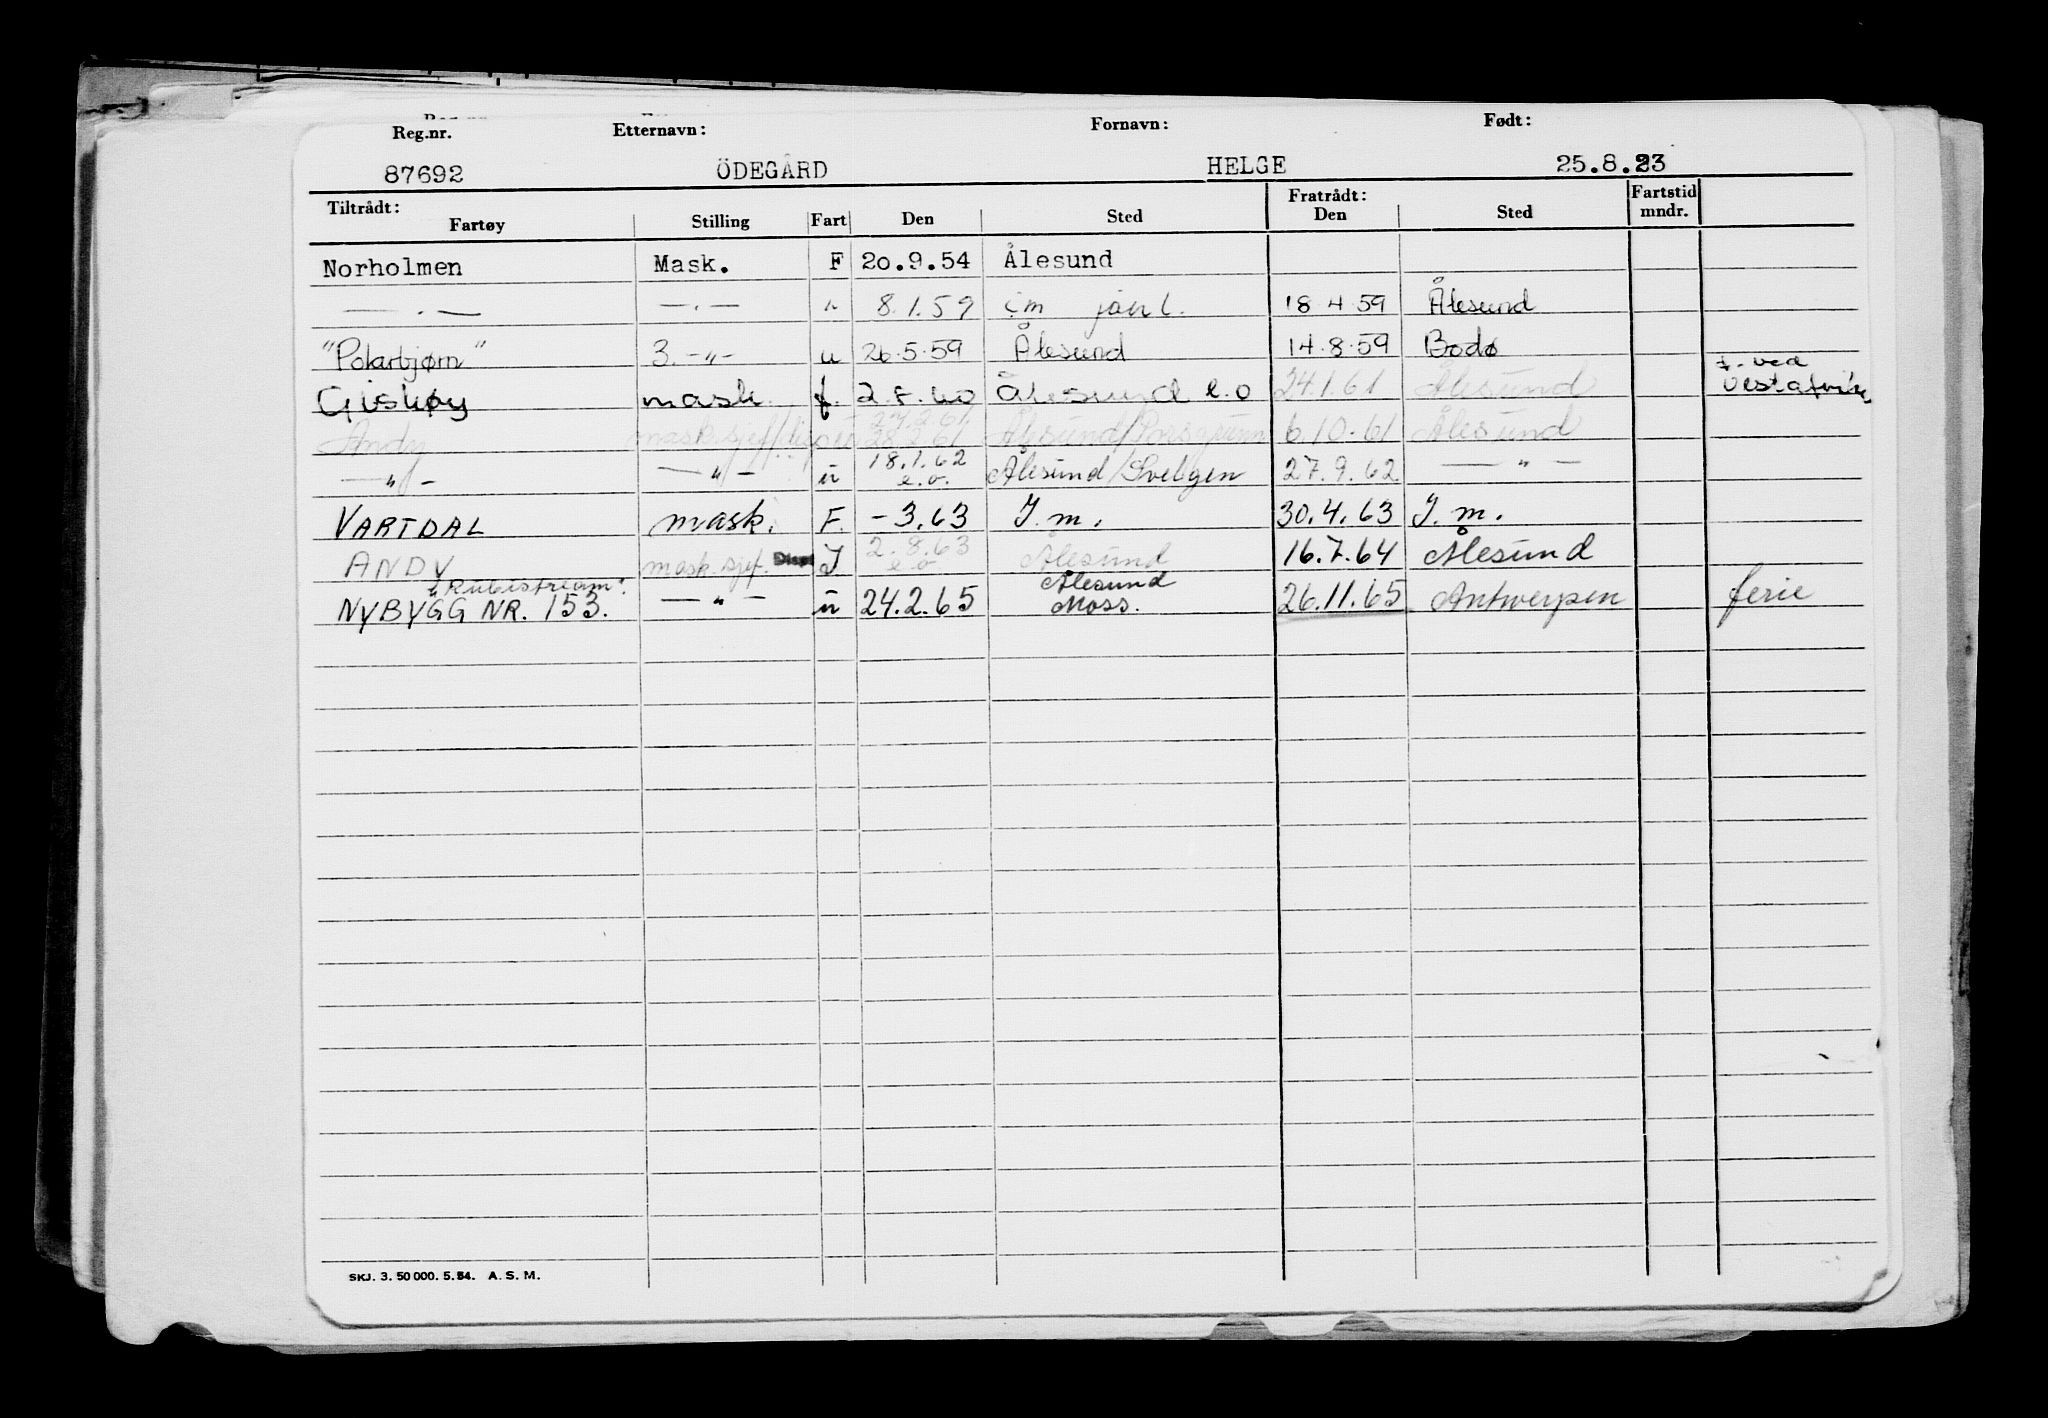 Reg.nr. Etternavn: Fornavn: Født:
87692 ÖDEGÅRD HELGE 25.8.23
Tiltrådt: Fratrådt: Fartstid
Fartøy Stilling Fart Den Sted Den Sted mndr.
Norholmen Mask. F 20.9.54 Ålesund
— . — — . — " 8.1.59 i.m 18.4.59 Ålesund
"Polarbjørn" 3. -"- u 26.5.59 Ålesund 14.8.59 Bodø
f. ved
Giskøy mask. f. 2.8.60 Ålesund e.o 24.1.61 Ålesund Vestafrika
27.2.61
Andy mask.sjef/ 28.2.61 Ålesund/Porsgrunn 6.10.61 Ålesund
18.1.62
— " — — " — u e.o. Ålesund/Svelgen 27.9.62 — " —
VARTDAL mask. F. -3.63 I.m. 30.4.63 I.m.
2.8.63
ANDY mask.sjef. Disp I e.o Ålesund 16.7.64 Ålesund
"Rubistream" Ålesund
NYBYGG NR. 153. — " — u 24.2.65 Moss. 26.11.65 Antwerpen ferie
SKJ. 3. 50 000. 5. 54. A. S. M.